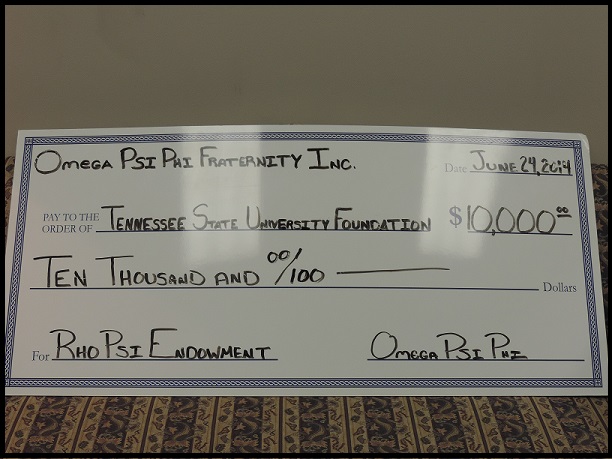 Omega Psi Phi Fraternity Inc.
Date June 24, 2014
PAY TO THE ORDER OF Tennessee State University Foundation $10,000.00
Ten Thousand and 00/100 Dollars
For Rho Psi Endowment Omega Psi Phi